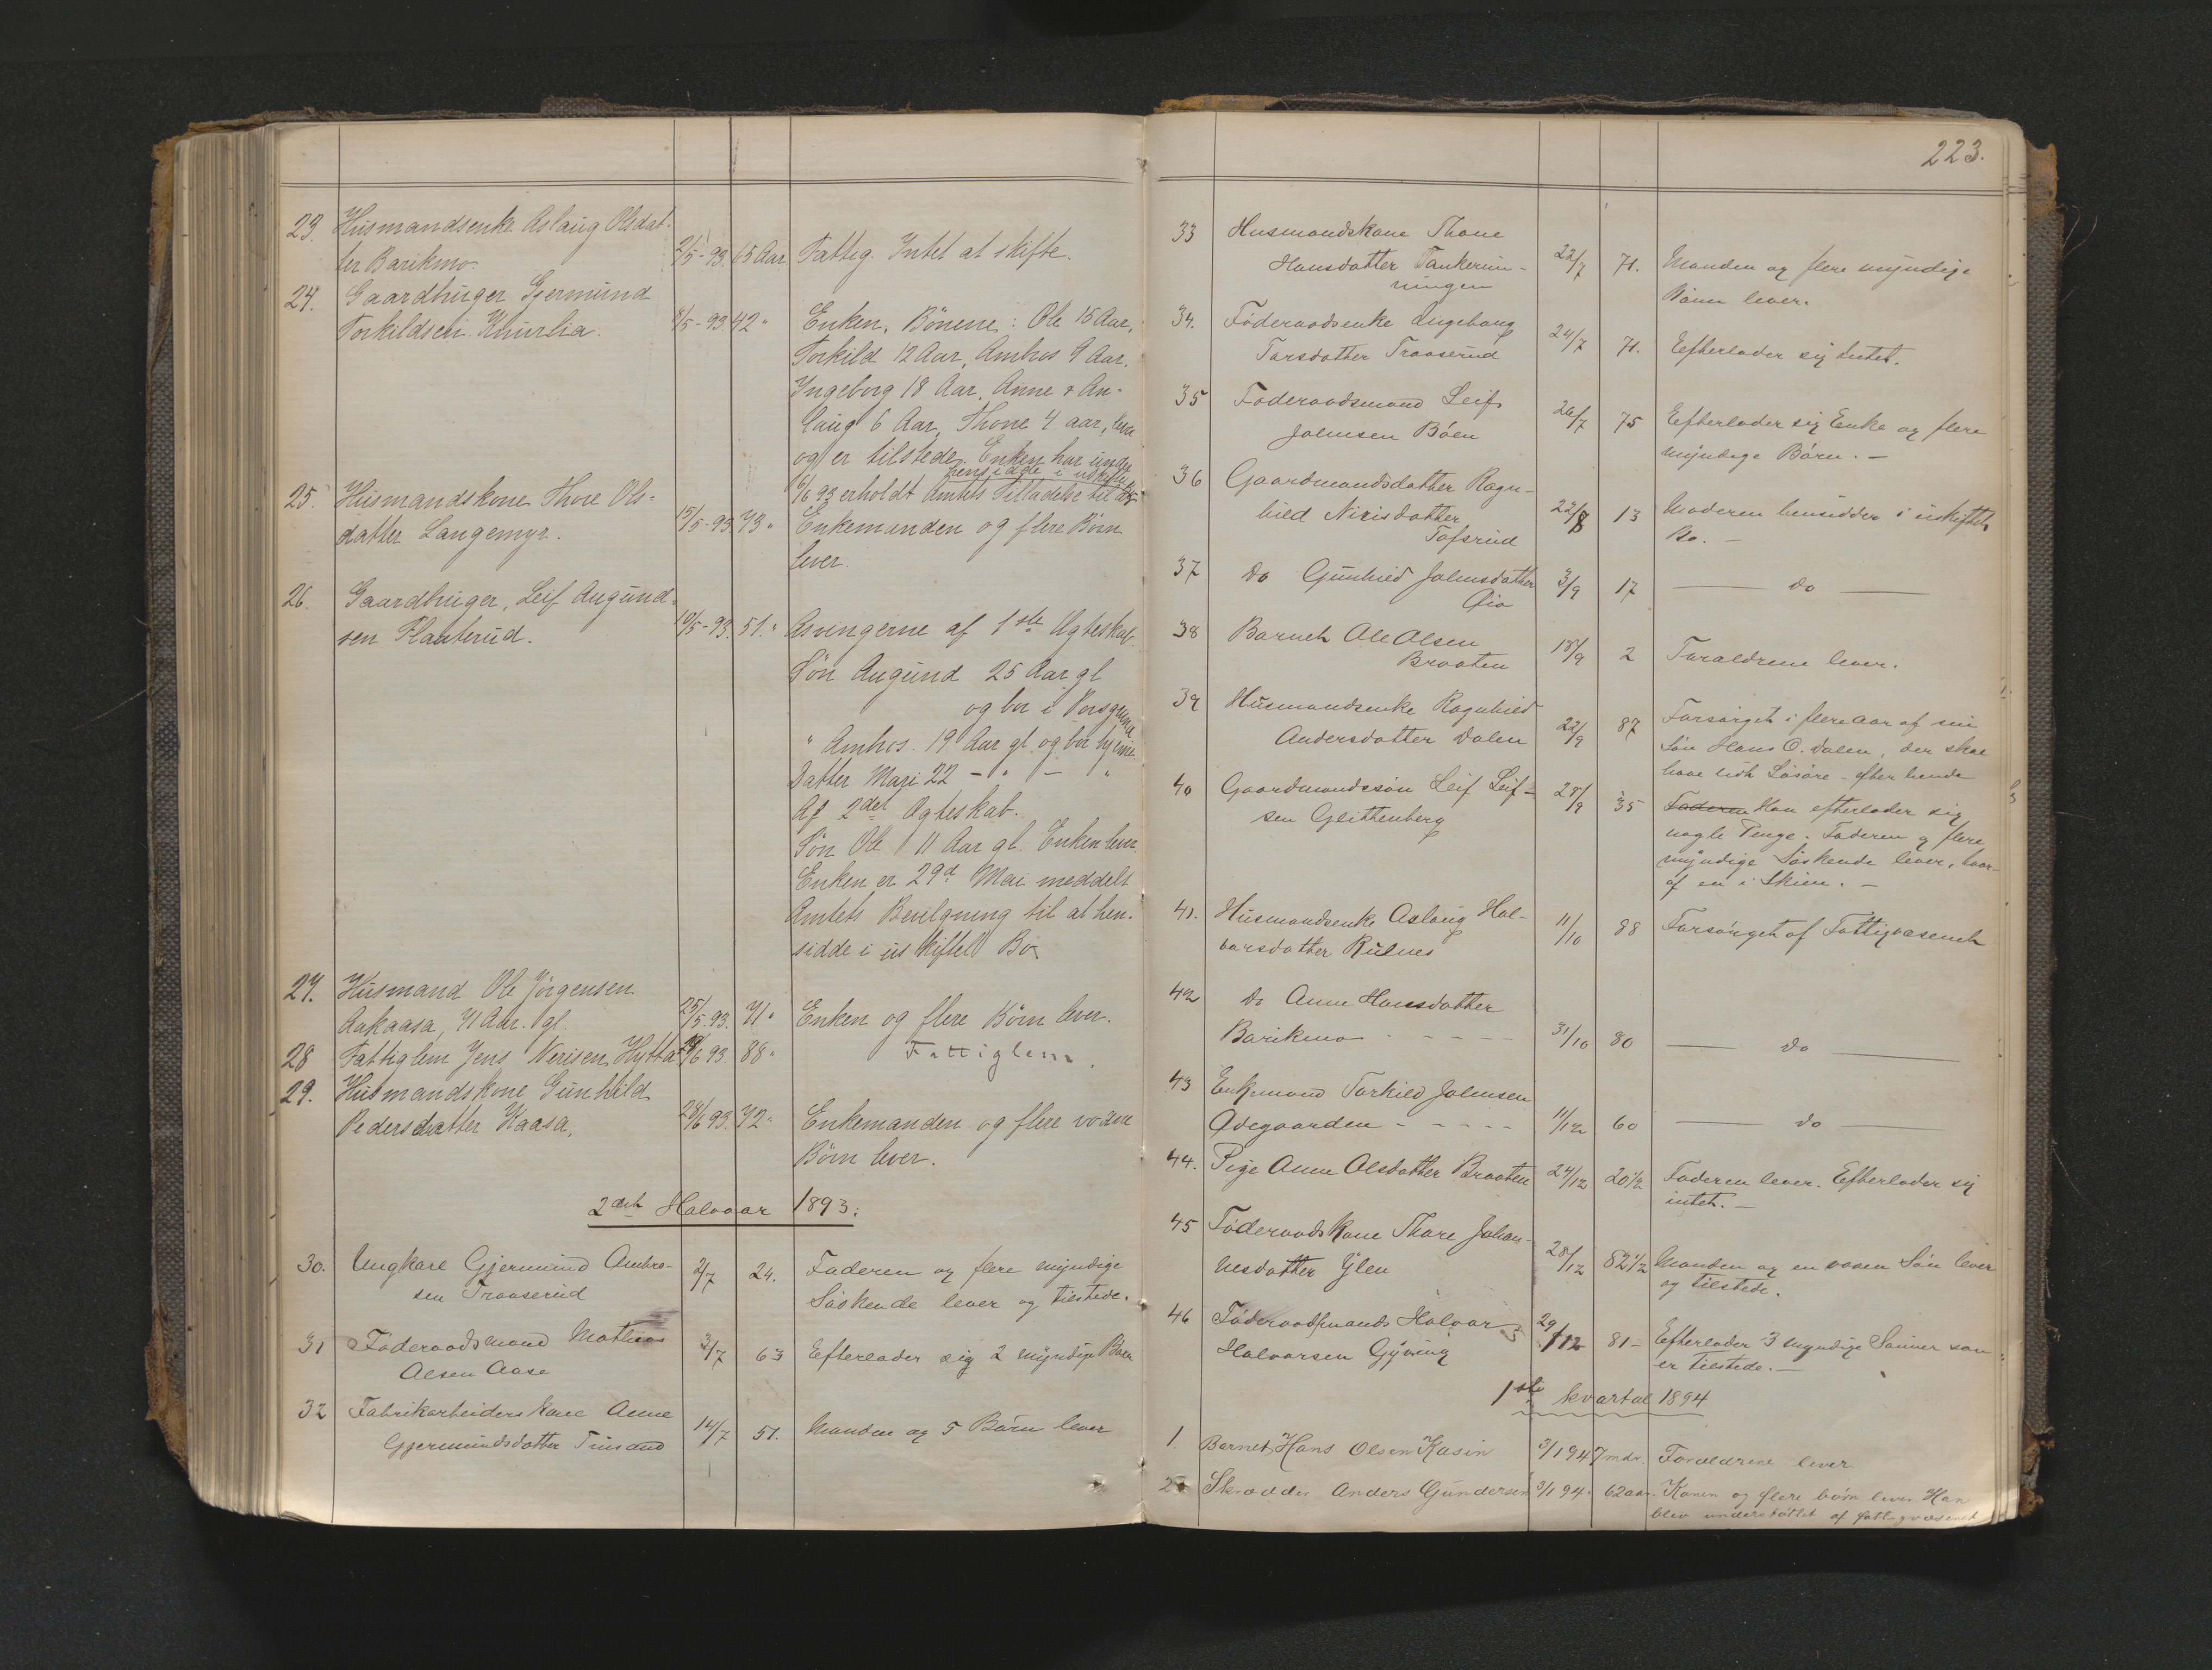 23. Husmandsenke Aslaug Olsdat-
ter Barikmo. 2/5-93. 65 Aar. Fattig. Intet at skifte.
24. Gaardbruger Gjermund
Torkildsen Knurlia. 8/5-93. 42 " Enken, Bönene: Ole 15 Aar,
Torkild 12 Aar, Ambros 9 Aar.
Ingeborg 18 Aar, Anne & An-
laug 6 Aar, Thone 4 aar, leve
og er tilstede. Enken har under
hensidde i uskiftet
6/6 93 erholdt Amtets Tilladelse til at Bo
25. Husmandskone Thore Ols-
datter Langemyr. 15/5-93. 73 " Enkemanden og flere Börn
lever.
26. Gaardbruger, Leif Augund-
sen Flauterud. 10/5-93. 51. " Arvingerne af 1ste Ægteskab
Sön Augund 25 Aar gl
og bor i Porsgrund
" Ambros 19 Aar gl og bor hjeme
Datter Mari 22 - " - "
Af 2det Ægteskab.
Sön Ole 11 Aar gl. Enken lever.
Enken er 29d Mai meddelt
Amtets Bevilgning til at hen-
sidde i uskiftet Bo
27. Husmand Ole Jörgensen
Aakaasa, 71 Aar. gl. 25/5.93. 71 " Enken og flere Börn lever.
28 Fattiglem Jens Nerisen Hytta 93. 88 " Fattiglem.
29. Husmandskone Gunhild
Pedersdatter Kaasa, 28/6 93. 72 " Enkemanden og flere voxne
Börn lever.
2det Halvaar 1893:
30. Ungkarl Gjermund Ambro-
sen Traaserud 2/7 24. Faderen og flere myndige
Söskende lever og tilstede.
31 Föderaadsmand Mathias
Olsen Aase 3/7 63 Efterlader sig 2 myndige Börn
32 Fabrikarbeiders kone Anne
Gjermundsdatter Tinsand 14/7 51. Manden og 5 Börn lever
223.
33 Husmandskone Thone
Hansdatter Tankerin-
ningen 22/7 71. Manden og flere myndige
Börn lever.
34. Föderaadsenke Ingeborg
Tarsdatter Traaserud 24/7 71. Efterlader sig Intet.
35 Föderaadsmand Leif
Johnsen Böen 26/7 75 Efterlader sig Enke og flere
myndige Börn. -
36 Gaardmandsdatter Ragn-
hild Nirisdatter
Tofsrud 22/8 13 Moderen hensidder i uskiftet
Bo. -
37 do Gunhild Johnsdatter
Qio 3/9 17 - do -
38 Barnet Ole Olsen
Braaten 18/9 2 Foraldrene lever.
39 Husmandsenke Ragnhild
Andersdatter Dalen 22/9 87 Forsörget i flere aar af sin
Sön Hans O. Dalen, der skal
have lidt Lösöre - efter hende
40 Gaardmandssön Leif Leif-
sen Glittenberg 28/9 35 Faderen Han efterlader sig
nogle Penge. Faderen og flere
myndige Söskende lever, hvor-
af en i Skien. -
41. Husmandsenke Aslaug Hal-
varsdatter Rulnes 11/10 88 Forsörget af Fattigvæsenet
42 do Anne Hansdatter
Barikmo - - - - 31/10 80 - do -
43 Enkemand Torkild Johnsen
Ödegaarden - - - - 11/12 60 - do -
44. Pige Anne Olsdatter Braaten 24/12 20 1/2 Faderen lever. Efterlader sig
intet. -
45 Föderaadskone Thore Johan-
nesdatter Ylen 28/12 82 1/2 Manden og en voxen Sön lever
og tilstede.
46 Föderaadsmands Halvar
Halvarsen Gjiving 29/12 81 - Efterlader 3 myndige Sönner som
er tilstede. -
1ste kvartal 1894
1. Barnet Hans Olsen Kasin 3/1 94 7 mdr. Forældrene lever
2 Skrædder Anders Gundersen 3/1 94. 62 aar. Konen og flere börn lever. Han
blev understöttet af fattigvæsenet